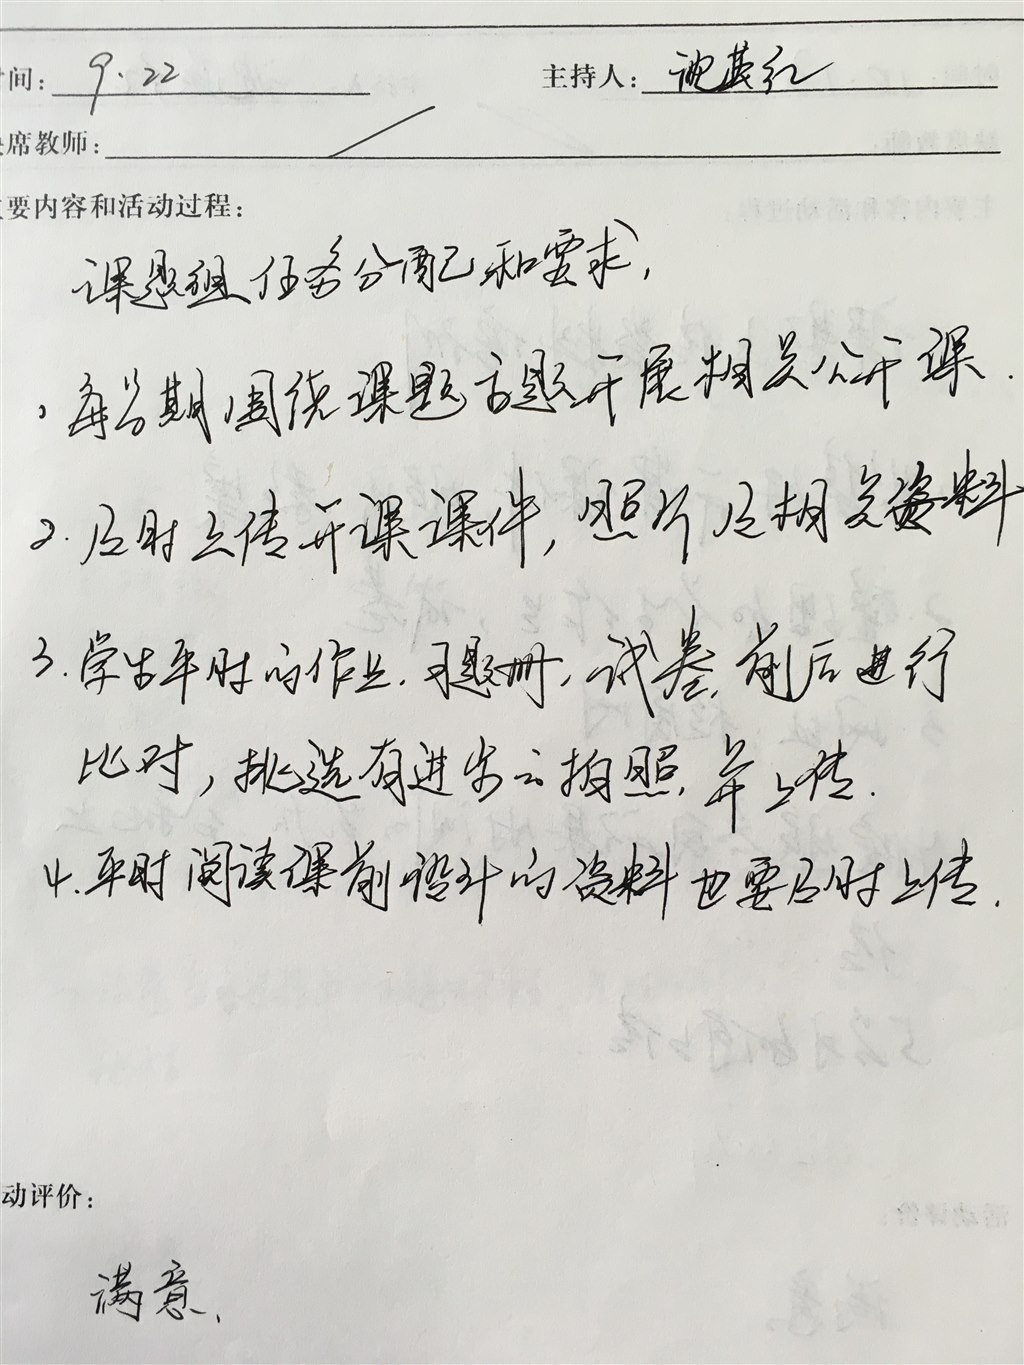 时间：9.22 主持人：沈英红
缺席教师：/
主要内容和活动过程：
课题组任务分配和要求，
1 每学期围绕课题主题开展相关公开课.
2. 及时上传开课课件，照片及相关资料
3. 学生平时的作业.习题册，试卷，前后进行
比对，挑选有进步云拍照，并上传.
4. 平时阅读课前设计的资料也要及时上传.
活动评价：
满意、